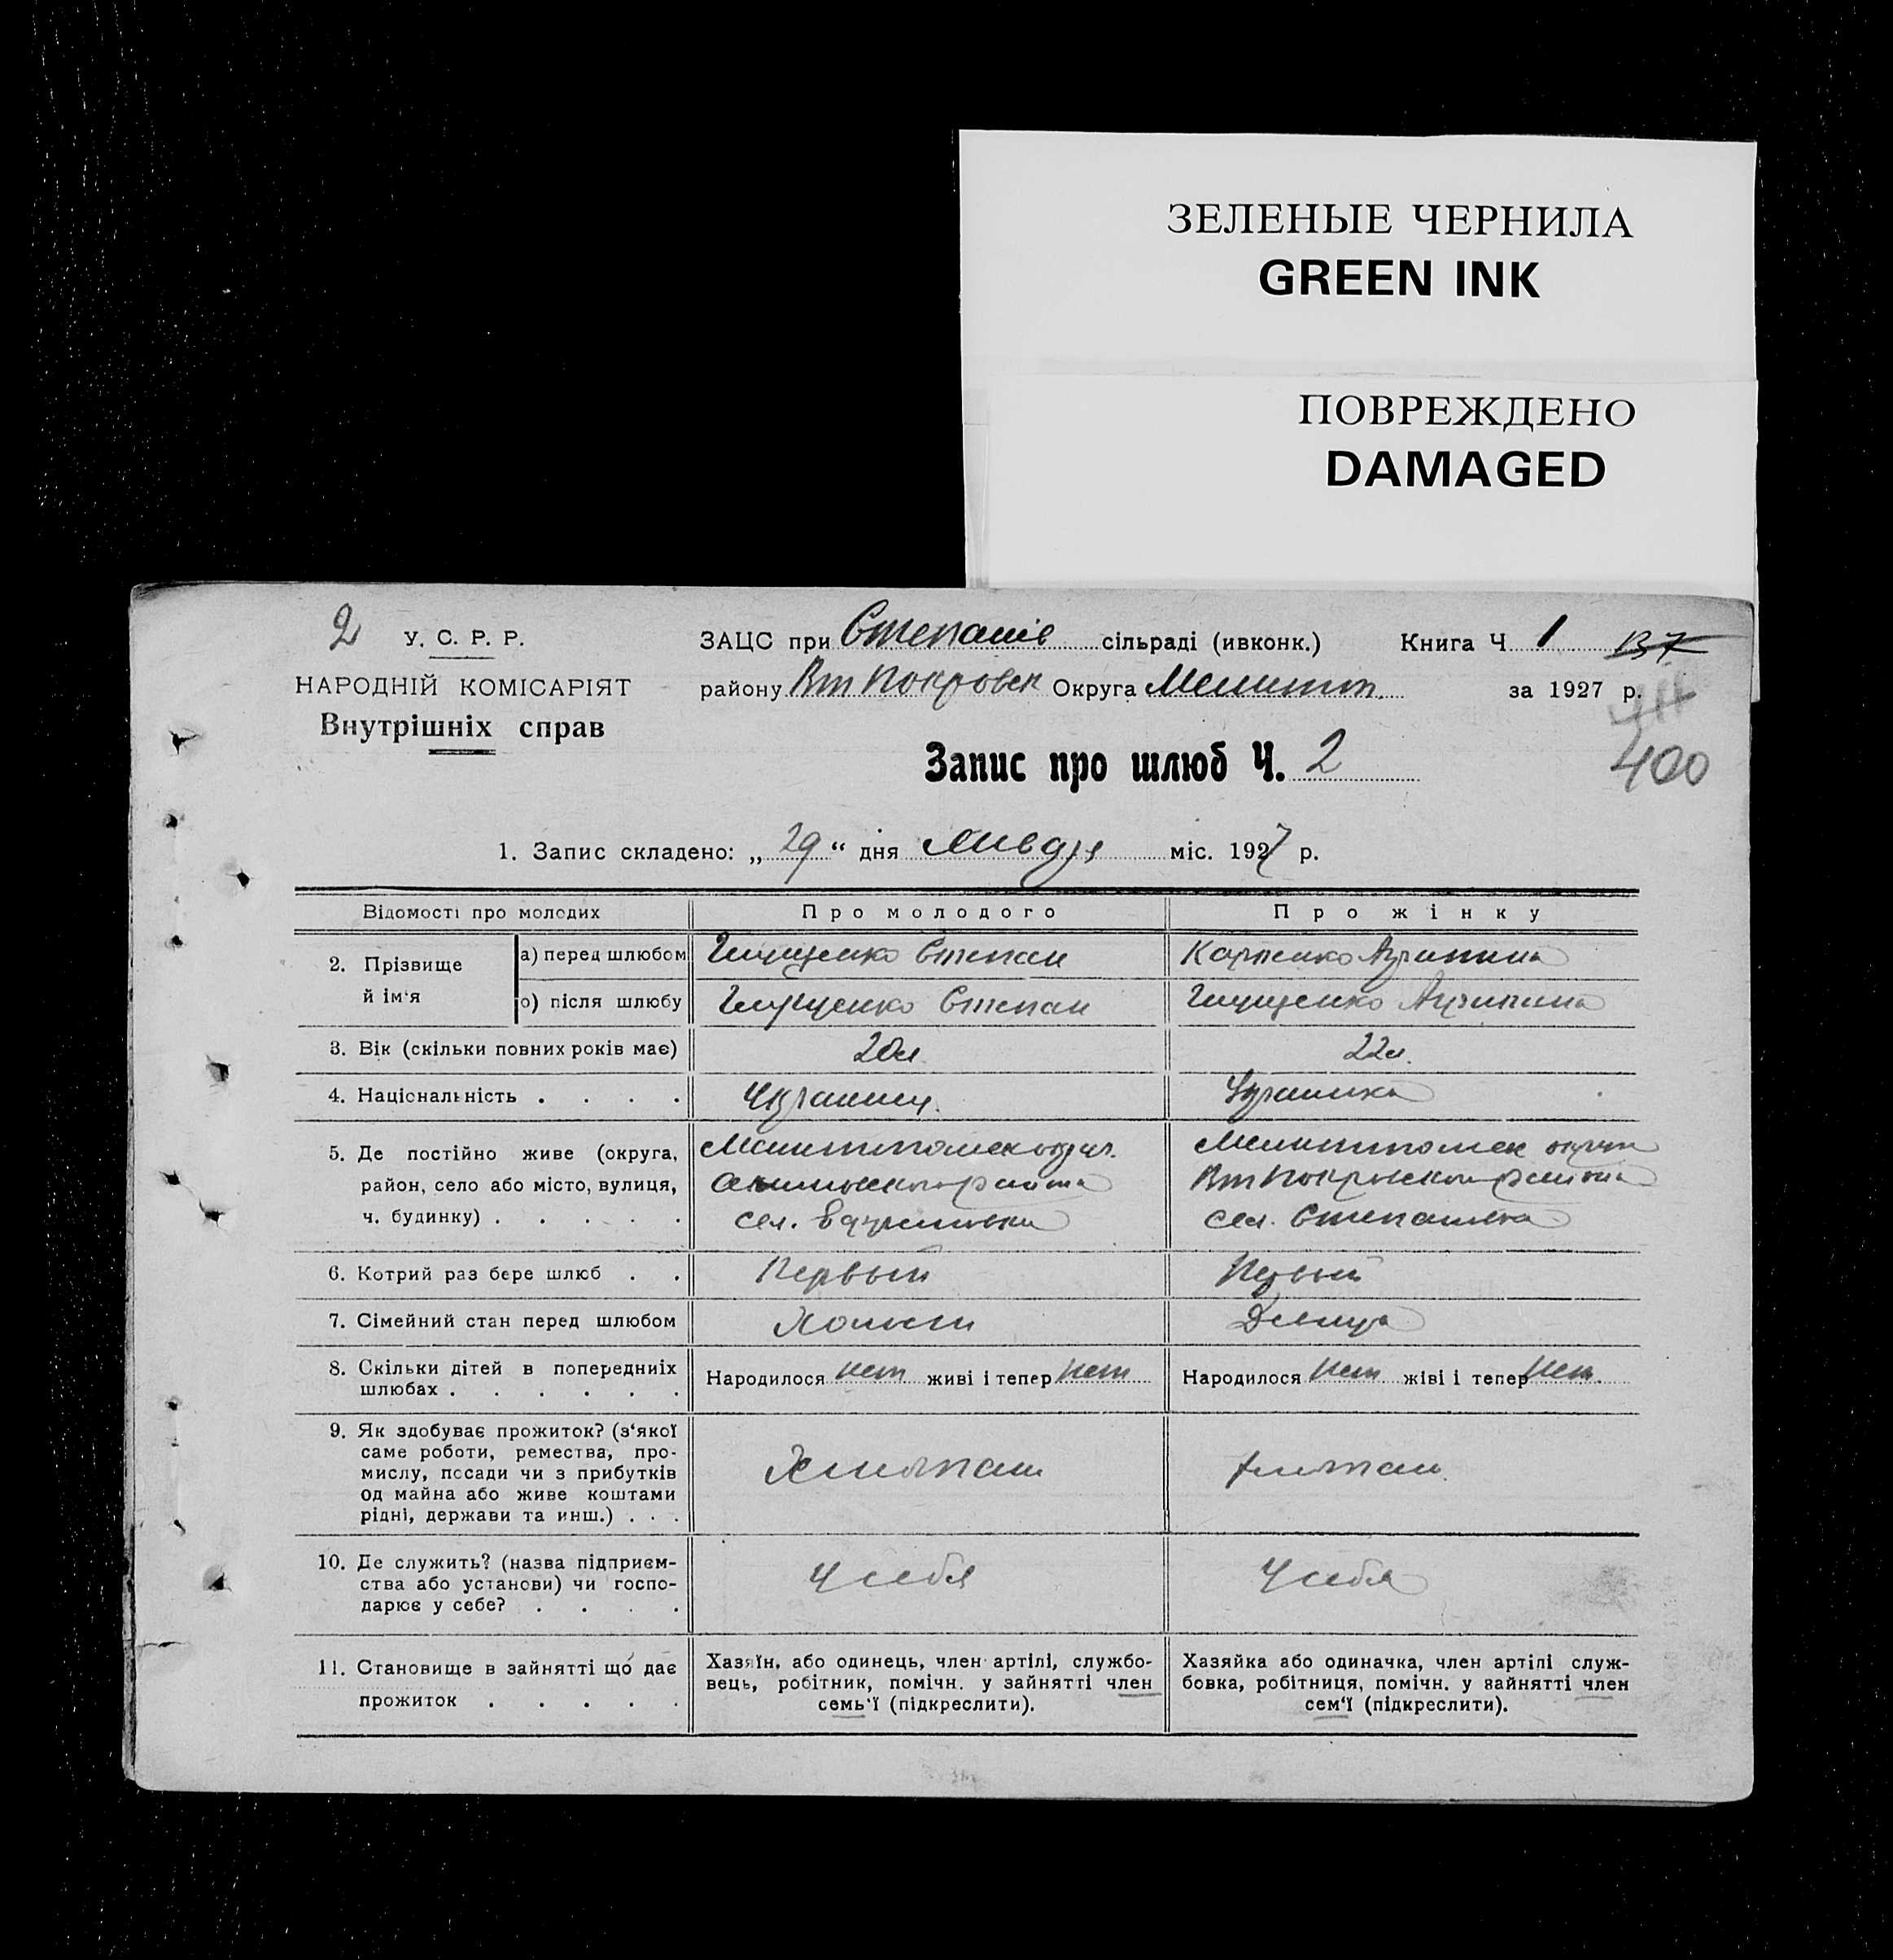 ЗЕЛЕНЫЕ ЧЕРНИЛА
GREEN INK
ПОВРЕЖДЕНО
DAMAGED
2 У. С. Р. Р.
НАРОДНІЙ КОМІСАРІЯТ
Внутрішніх справ
ЗАЦС при Степанів сільраді (ивконк.)
району Вт Покровск Округа Мелитоп.
Книга Ч 1 137
за 1927 р.
400
Запис про шлюб Ч. 2
1. Запис складено: „ 29 “ дня января міс. 1927 р.
Відомості про молодих Про молодого Про жінку
2. Прізвище й ім‘я
а) перед шлюбом Степан Карпенко Агрипина
о) після шлюбу Степан Агрипина
3. Вік (скільки повних років має) 20л. 22л.
4. Національність . . . . Украинец. Украинка
5. Де постійно живе (округа, Мелитопольск окр Мелитопольск округа
район, село або місто, вулиця, района Вт Покровского района
ч. будинку) . . . . . сел. сел. Степановка
6. Котрий раз бере шлюб . . Первый Первый
7. Сімейний стан перед шлюбом Холост Девица
8. Скільки дітей в попередниіх
шлюбах . . . . . .
Народилося нет живі і тепер нет
Народилося нет жіві і тепер нет.
9. Як здобуває прожиток? (з‘якої
саме роботи, ремества, про-
мислу, посади чи з прибутків
од майна або живе коштами
рідні, держави та инш.) . . .
Хлебопаш хлебопаш.
10. Де служить? (назва підприєм-
ства або установи) чи госпо-
дарює у себе? . . . .
У себя У себя
11. Становище в зайнятті що дає
прожиток . . . . .
Хазяїн, або одинець, член артілі, службо-
вець, робітник, помічн. у зайнятті член
семь‘ї (підкреслити).
Хазяйка або одиначка, член артілі служ-
бовка, робітниця, помічн. у зайнятті член
сем‘ї (підкреслити).